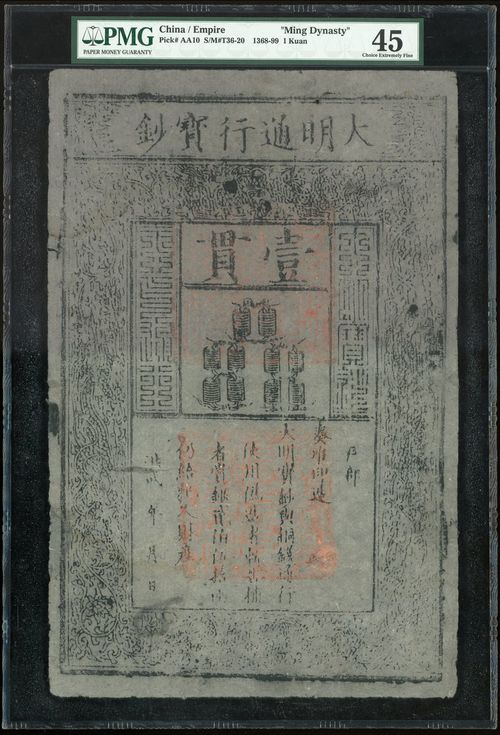 PMG
PAPER MONEY GUARANTY
China / Empire "Ming Dynasty"
Pick# AA10 S/M#T36-20 1368-99 1 Kuan
45
Choice Extremely Fine
大明通行寶鈔
壹貫
戶部
奏准印造
大明寶鈔與銅錢通行
使用偽造者斬告捕
者賞銀貳伯伍拾兩
仍給犯人財産
洪武 年 月 日